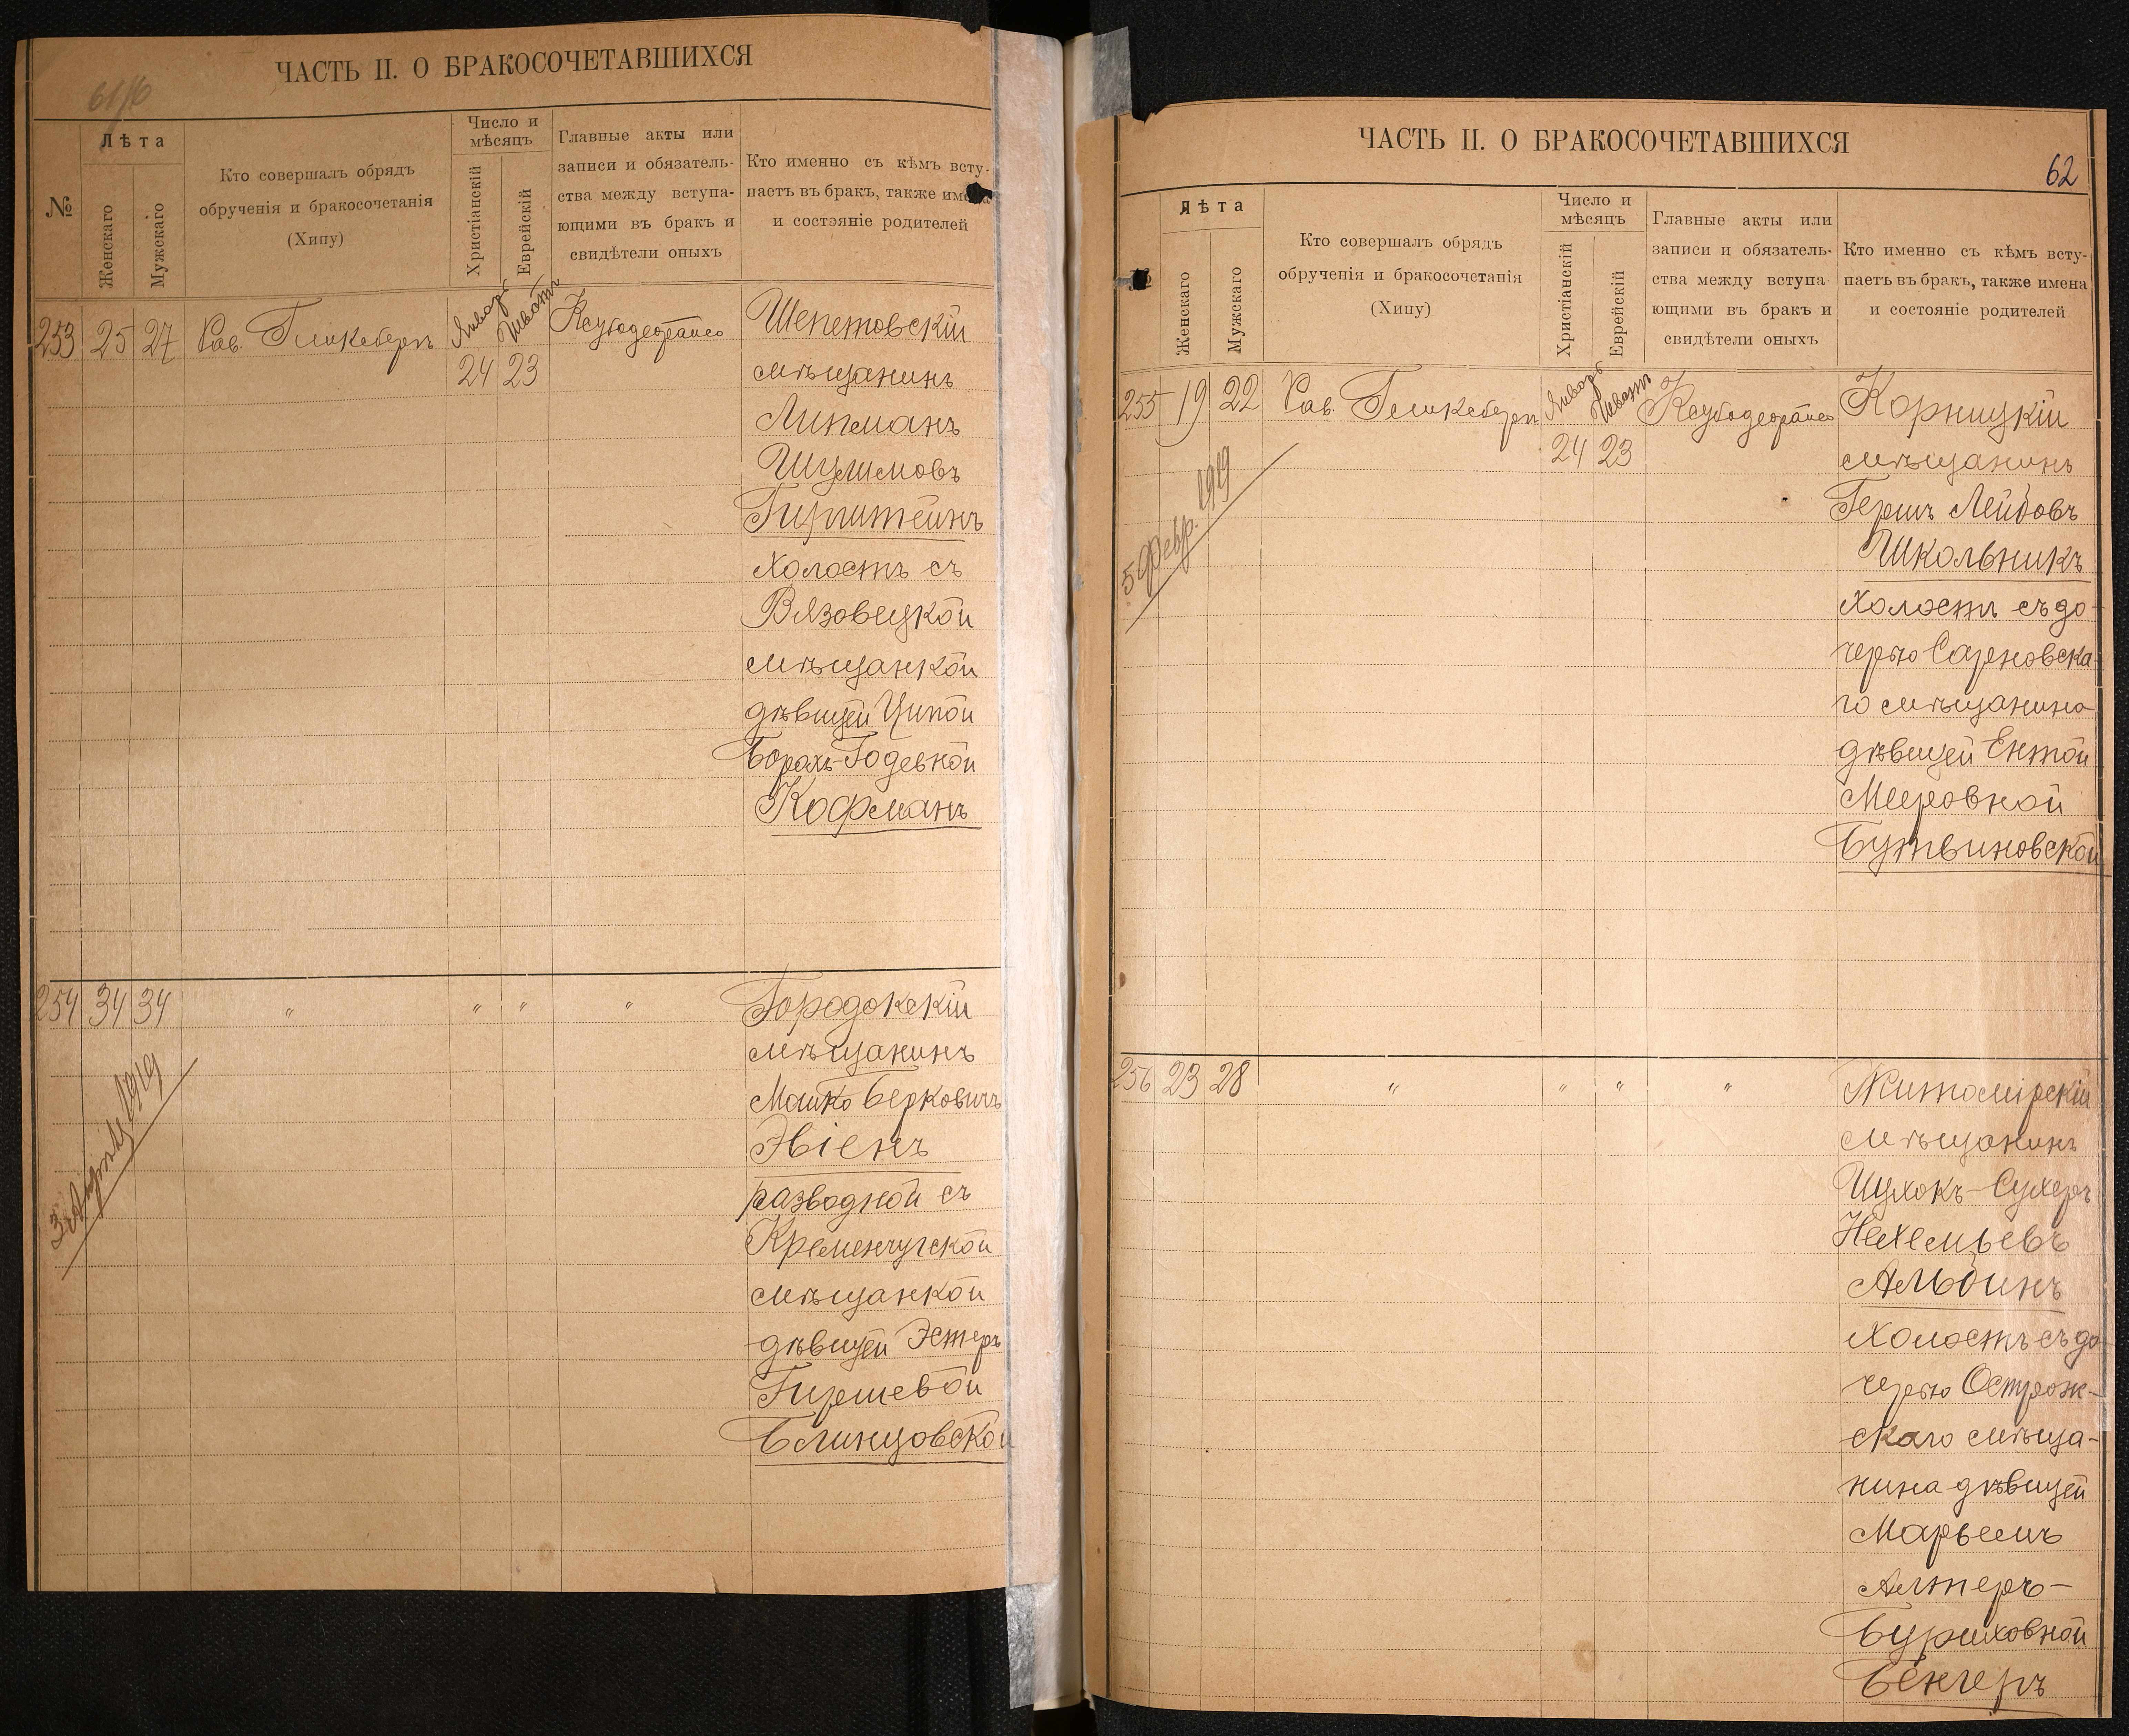 ЧАСТЬ II. О БРАКОСОЧЕТАВШИХСЯ
№
Лѣта
Женскаго
Мужскаго
Кто совершалъ обрядъ
обрученія и бракосочетанія
(Хипу)
Число и
мѣсяцъ
Христіанскій
Еврейскій
Главные акты или
записи и обязатель-
ства между вступа-
ющими въ бракъ и
свидѣтели оныхъ
Кто именно съ кѣмъ всту-
паетъ въ бракъ, также имена
и состояніе родителей
253 25 27 Рав. Январь Шватъ Шепетовскій
24 23 мѣщанинъ
Липманъ
Шулимовъ
Гирштейнъ
холостъ съ
Вязовецкой
мѣщанкой
дѣвицей Ципой
Борахъ-Годевной
Кофманъ
254 34 34 " " " " Городокскій
мѣщанинъ
Машко Берковичъ
Эвіенъ
разводной съ
Кременчугской
мѣщанкой
дѣвицей Эстеръ
Гиршевой
Блинцовской
1919
ЧАСТЬ II. О БРАКОСОЧЕТАВШИХСЯ
62
Лѣта
Женскаго
Мужскаго
Кто совершалъ обрядъ
обрученія и бракосочетанія
(Хипу)
Число и
мѣсяцъ
Христіанскій
Еврейскій
Главные акты или
записи и обязатель-
ства между вступа-
ющими въ бракъ и
свидѣтели оныхъ
Кто именно съ кѣмъ всту-
паетъ въ бракъ, также имена
и состояніе родителей
255 19 22 Рав. Январь Шватъ Корницкій
24 23 мѣщанинъ
Гершъ Лейбовъ
Школьникъ
холостъ съ до-
черью Сарновска-
го мѣщанина
дѣвицей Ентой
Мееровной
Бутвиновской
5 Февр. 1919
256 23 28 " " " " Житомірскій
мѣщанинъ
Шухокъ-Сухеръ
Нехемьевъ
Альбинъ
холостъ съ до-
черью Острож-
скаго мѣща-
нина дѣвицей
Марьемъ
Алтеръ-
Буриховной
Бенгеръ